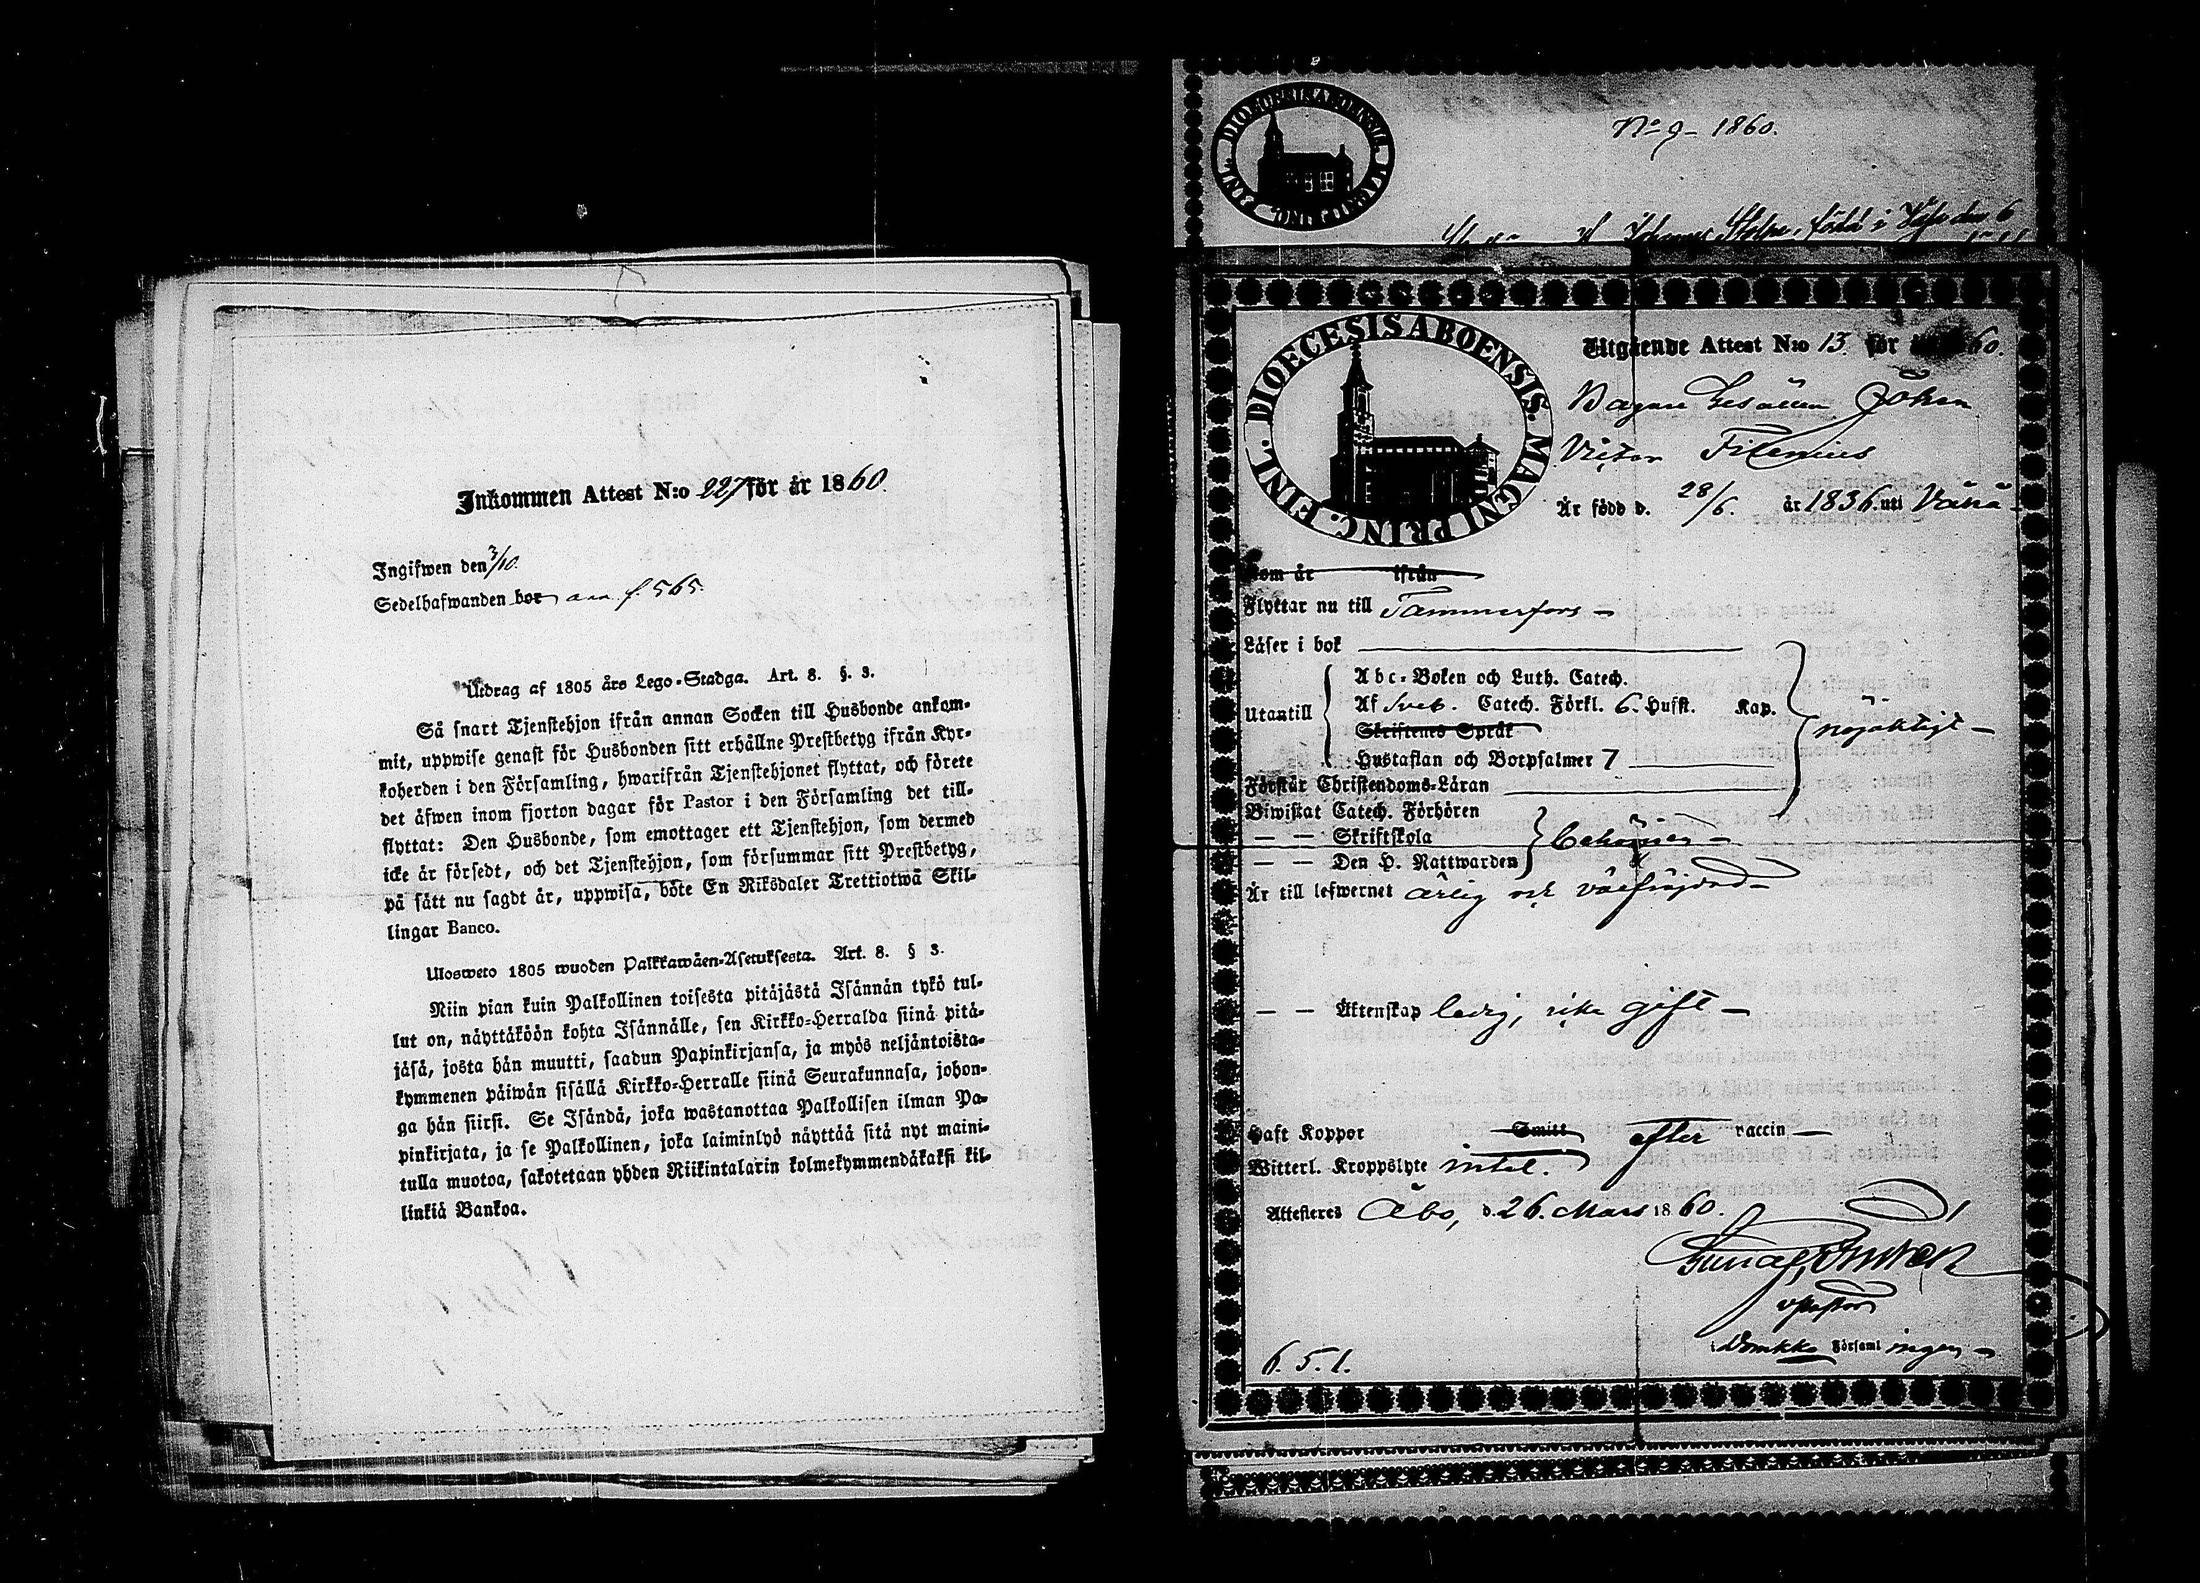 Inkommen Attest N:o 227 för år 1860.
Ingifwen den 3/10.
Sedelhafwanden bor f. 565.
Utdrag af 1805 års Lego-Stadga. Art. 8. §. 3.
Så snart Tjenstehjon ifrån annan Socken till Husbonde ankom-
mit, uppwise genast för Husbonden sitt erhållne Prestbetyg ifrån Kyr-
koherden i den Församling, hwarifrån Tjenstehjonet flyttat, och förete
det äfwen inom fjorton dagar för Pastor i den Församling det till-
flyttat: Den Husbonde, som emottager ett Tjenstehjon, som dermed
icke är försedt, och det Tjenstehjon, som försummar sitt Prestbetyg,
på sätt nu sagdt är, uppwisa, böte En Riksdaler Trettiotwå Skil-
lingar Banco.
Ulosweto 1805 wuoden Palkkawäen-Asetuksesta. Art. 8. § 3.
Niin pian kuin Palkollinen toisesta pitäjästä Isännän tykö tul-
lut on, näyttäköön kohta Isännälle, sen Kirkko-Herralda siinä pitä-
jäsä, josta hän muutti, saadun Papinkirjansa, ja myös neljäntoista-
kymmenen päiwän sisällä Kirkko-Herralle siinä Seurakunnasa, johon-
ga hän siirsi. Se Isändä, joka wastanottaa Palkollisen ilman Pa-
pinkirjata, ja se Palkollinen, joka laiminlyö näyttää sitä nyt maini-
tulla muotoa, sakotetaan yhden Riikintalarin kolmekymmendäkaksi kil-
linkiä Bankoa.
DIOECESIS ABOENSIS. MAGNI PRINC. FINL.
No 9 - 1860.
Johannes född i den 6
DIOECESIS ABOENSIS. MAGNI PRINC. FINL.
Utgående Attest N:o 13. för 60.
Bagare Gesällen Johan
Victor Filenius
Är född d. 28/6. år 1836. uti
Kom år ifrån
Flyttar nu till Tammerfors -
Läser i bok
Abc-Boken och Luth. Catech.
Utantill Af Sveb. Catech. Förkl. 6. Hufst. Kap.
Skriftenes Språk
Hustaflan och Botpsalmer 7
nöjaktigt -
Förstår Christendoms-Läran
Biwistat Catech. Förhören
— — Skriftskola
— — Den H. Nattwarden
behörigen -
Är till lefwernet ärlig och välfrejdad -
— — Äktenskap ledig, icke gift -
Haft Koppor Smitt efter vaccin -
Witterl. Kroppslyte intet.
Attesteras Åbo, d. 26. Mars 1860.
v Pastor
i Domkko Församlingen -
6. 5. 1.